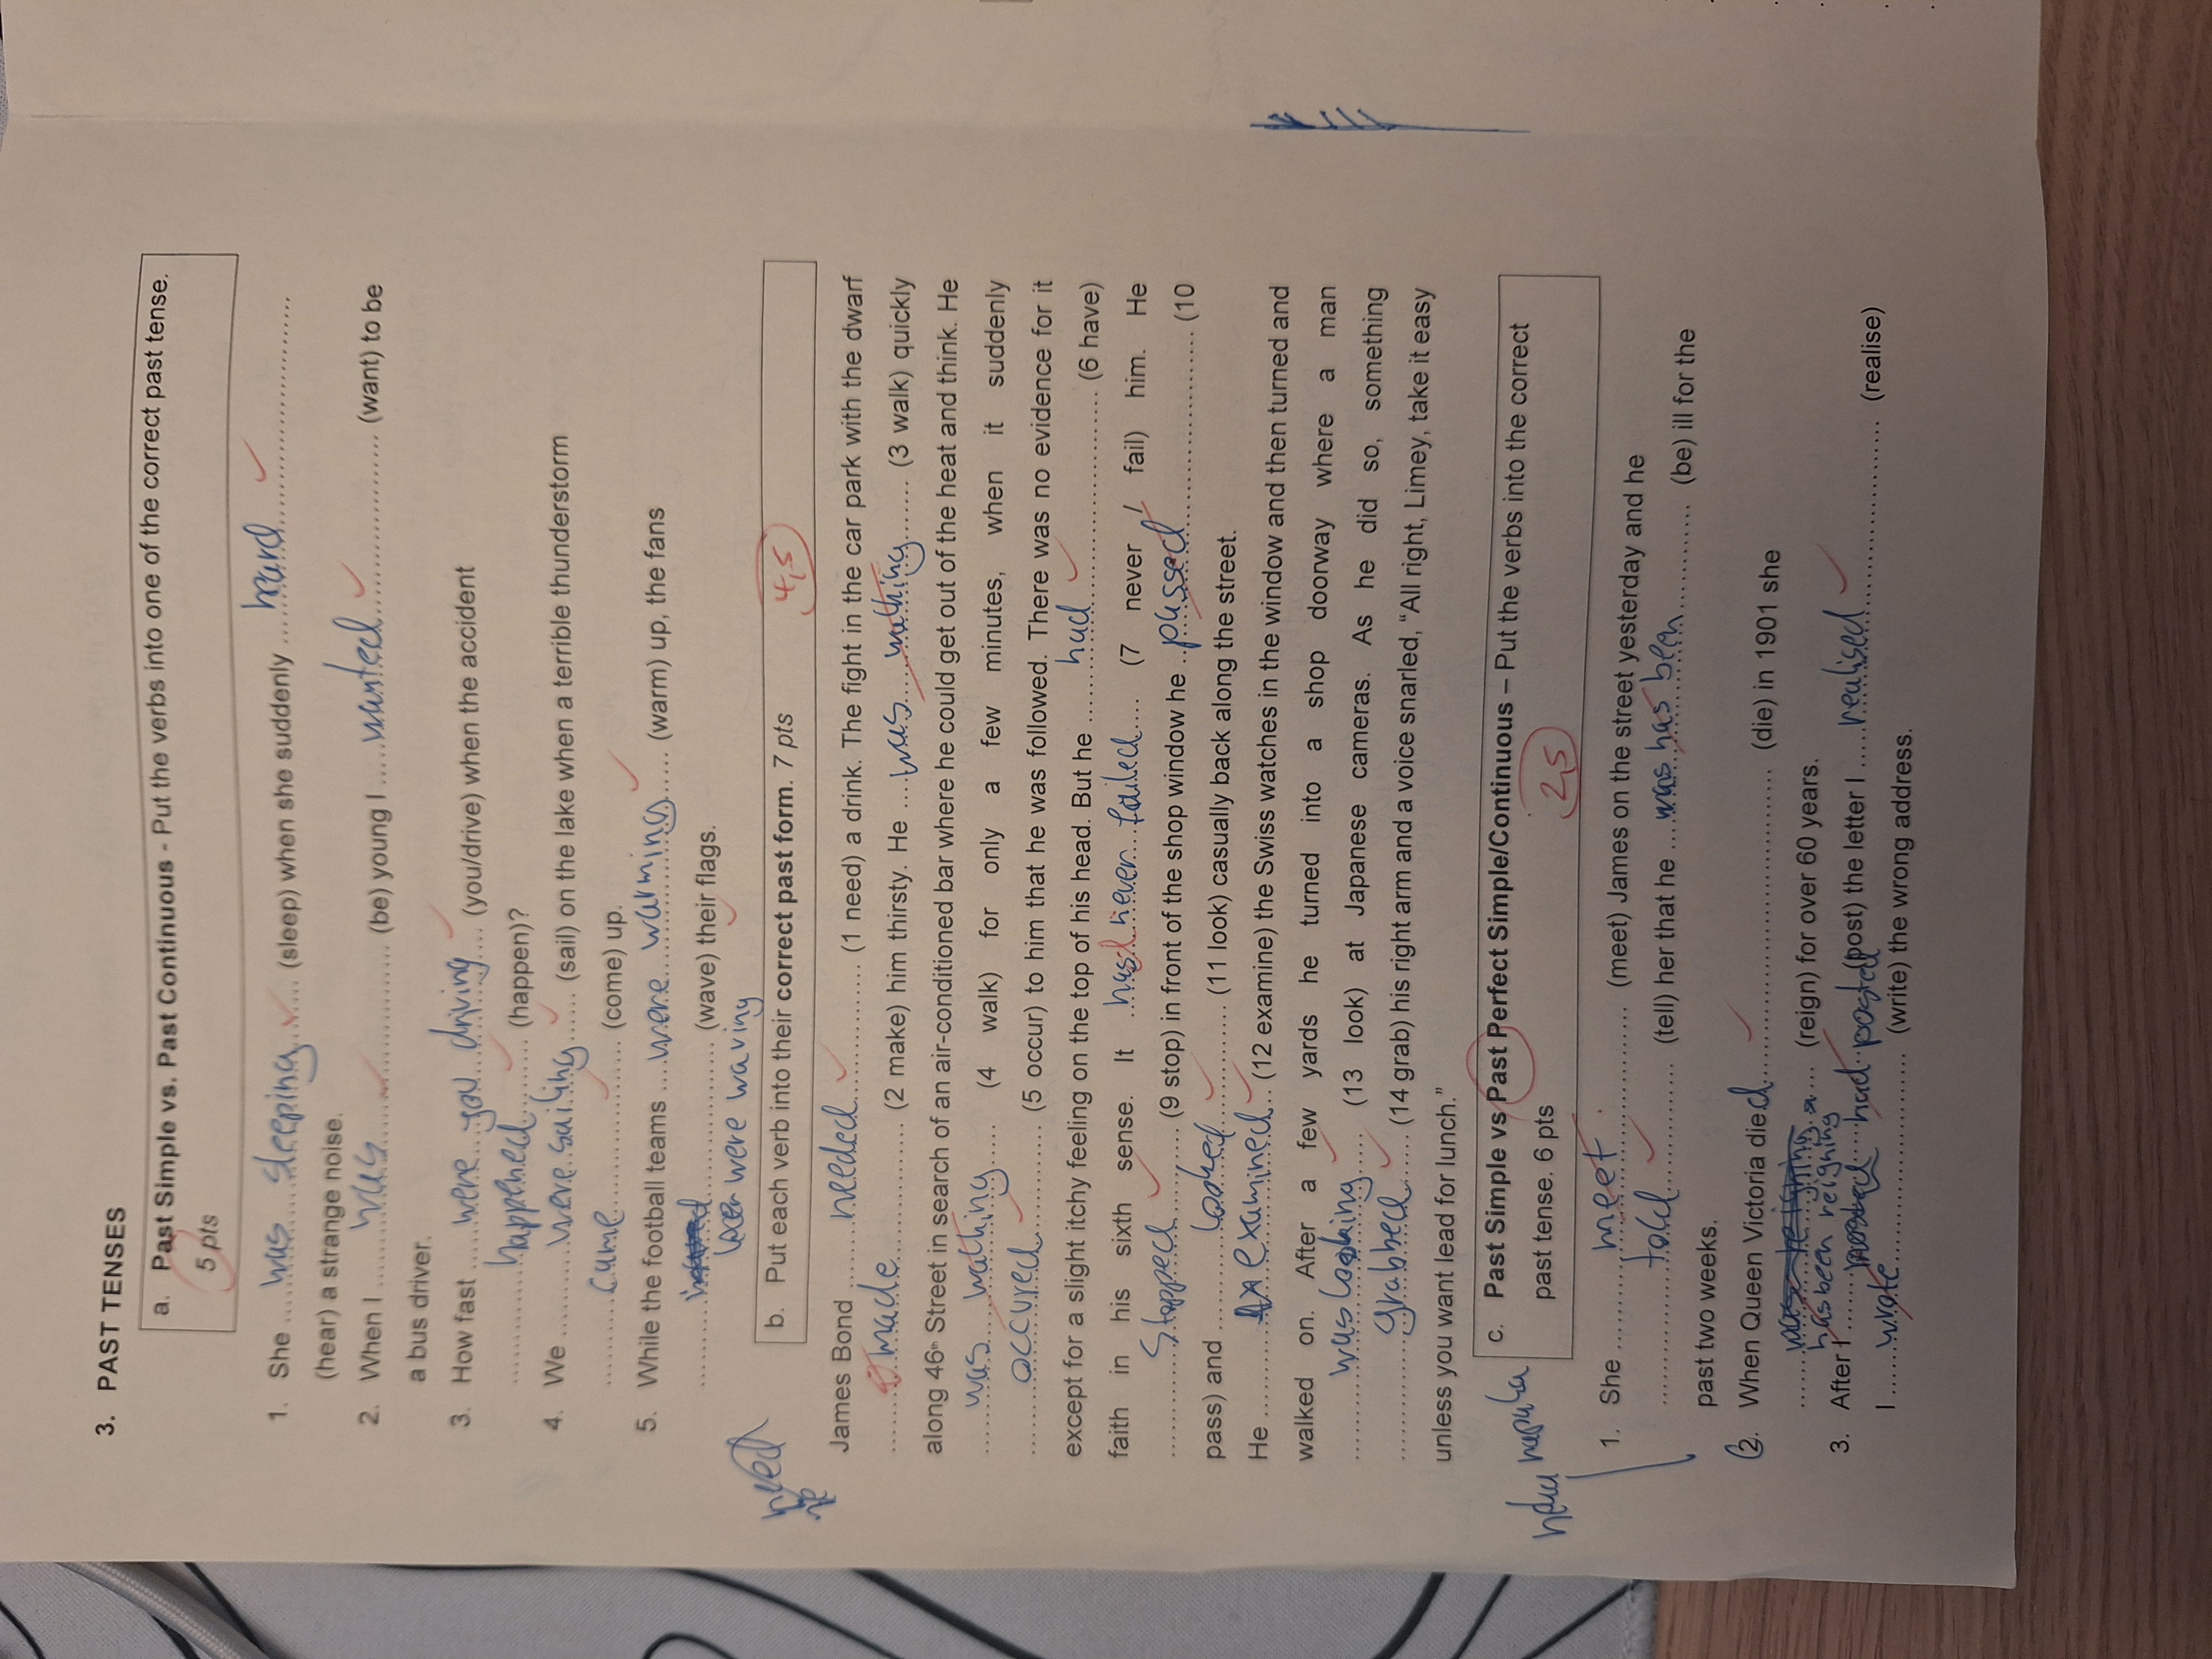 3. PAST TENSES
a. Past Simple vs. Past Continuous - Put the verbs into one of the correct past tense.
5 pts
1. She ... was sleeping ... (sleep) when she suddenly ... heard ...
(hear) a strange noise.
2. When I ... was ... (be) young I ... wanted ... (want) to be
a bus driver.
3. How fast ... were you driving ... (you/drive) when the accident
... happened ... (happen)?
4. We ... were sailing ... (sail) on the lake when a terrible thunderstorm
... came ... (come) up.
5. While the football teams ... were warming ... (warm) up, the fans
... (wave) their flags.
were waving
need
b. Put each verb into their correct past form. 7 pts 4,5
James Bond ... needed ... (1 need) a drink. The fight in the car park with the dwarf
... made ... (2 make) him thirsty. He ... was walking ... (3 walk) quickly
along 46th Street in search of an air-conditioned bar where he could get out of the heat and think. He
... was walking ... (4 walk) for only a few minutes, when it suddenly
... occured ... (5 occur) to him that he was followed. There was no evidence for it
except for a slight itchy feeling on the top of his head. But he ... had ... (6 have)
faith in his sixth sense. It ... has never failed ... (7 never / fail) him. He
... stopped ... (9 stop) in front of the shop window he ... passed ... (10
pass) and ... looked ... (11 look) casually back along the street.
He ... examined ... (12 examine) the Swiss watches in the window and then turned and
walked on. After a few yards he turned into a shop doorway where a man
... was looking ... (13 look) at Japanese cameras. As he did so, something
... grabbed ... (14 grab) his right arm and a voice snarled, “All right, Limey, take it easy
unless you want lead for lunch.”
c. Past Simple vs Past Perfect Simple/Continuous – Put the verbs into the correct
past tense. 6 pts 2,5
1. She ... meet ... (meet) James on the street yesterday and he
... told ... (tell) her that he ... was has been ... (be) ill for the
past two weeks.
2. When Queen Victoria died ... (die) in 1901 she
... was reigning ... (reign) for over 60 years.
has been reigning
3. After I ... posted had posted (post) the letter I ... realised ... (realise)
I ... wrote ... (write) the wrong address.